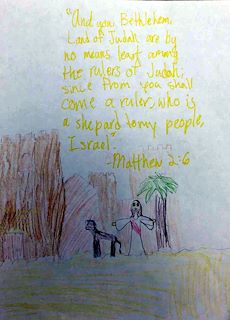 "And you, Bethlehem,
Land of Judah are by
no means least among
the rulers of Judah;
since from you shall
come a ruler, who is
a shepard to my people,
Israel".
-Matthew 2:6